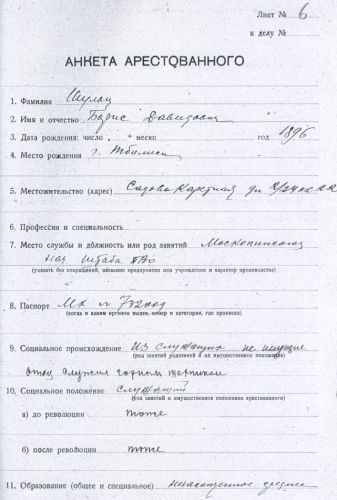 Лист № 6
к делу №
АНКЕТА АРЕСТОВАННОГО
1. Фамилия Шульц
2. Имя и отчество Борис Давидович
3. Дата рождения: число „ “ месяц год 1896
4. Место рождения г. Тбилиси
5. Местожительство (адрес) Садово Каретная
6. Профессия и специальность
7. Место службы и должность или род занятий
нач штаба ПВО
(указать без сокращений, название предприятия или учреждения и характер производства)
8. Паспорт
(когда и каким органом выдан, номер и категория, где прописан)
9. Социальное происхождение из служащих не имущие
(род занятий родителей и их имущественное положение)
отец служил горным
10. Социальное положение служащий
(род занятий и имущественное положение арестованного)
а) до революции тоже
б) после революции тоже
11. Образование (общее и специальное) незаконченное среднее